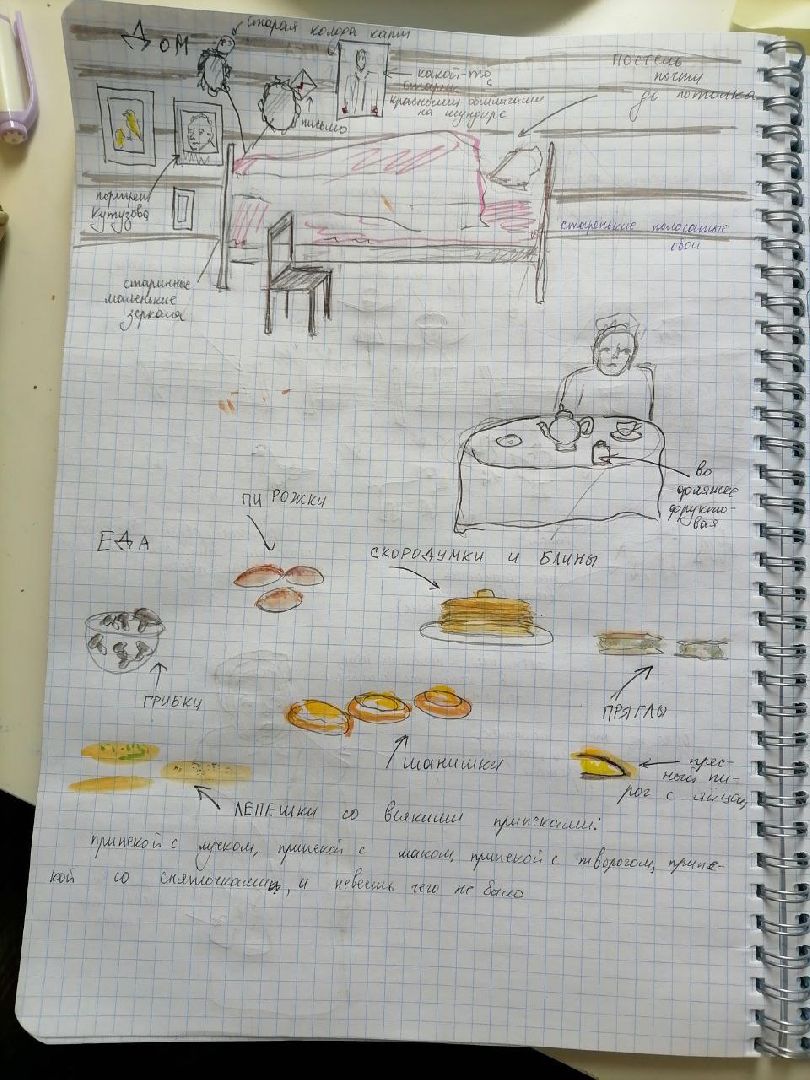 Дом
старая колода карт
какой-то
старик
с красными обшлагами
на мундире
письмо
постель
почти
до потолка
портрет
Кутузова
старинные
маленькие
зеркала
старенькие полосатые
обои
во
фляжке
фруктовая
ЕДА
ПИРОЖКИ
СКОРОДУМКИ И БЛИНЫ
ГРИБКИ
МАНИШКИ
ПРЯГЛЫ
прес-
ный пи-
рог с яйцом
ЛЕПЕШКИ со всякими припеками:
припекой с луком, припекой с маком, припекой с творогом, припе-
кой со сняточками, и невесть чего не было